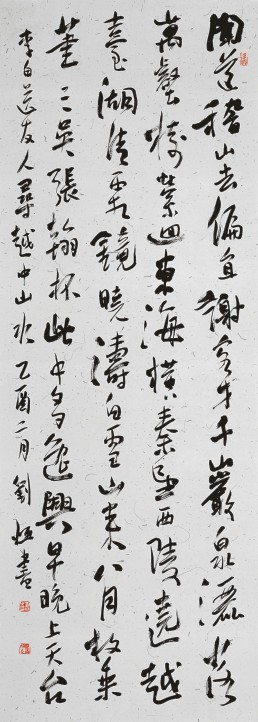 聞道稽山去偏宜謝客才千巖泉灑落
萬壑樹縈迴東海橫秦望西陵遶越
臺湖清霜鏡曉濤白雪山來八月枚乘
筆三吳張翰杯此中多逸興早晚上天台
李白送友人尋越中山水 乙酉二月 劉恒書